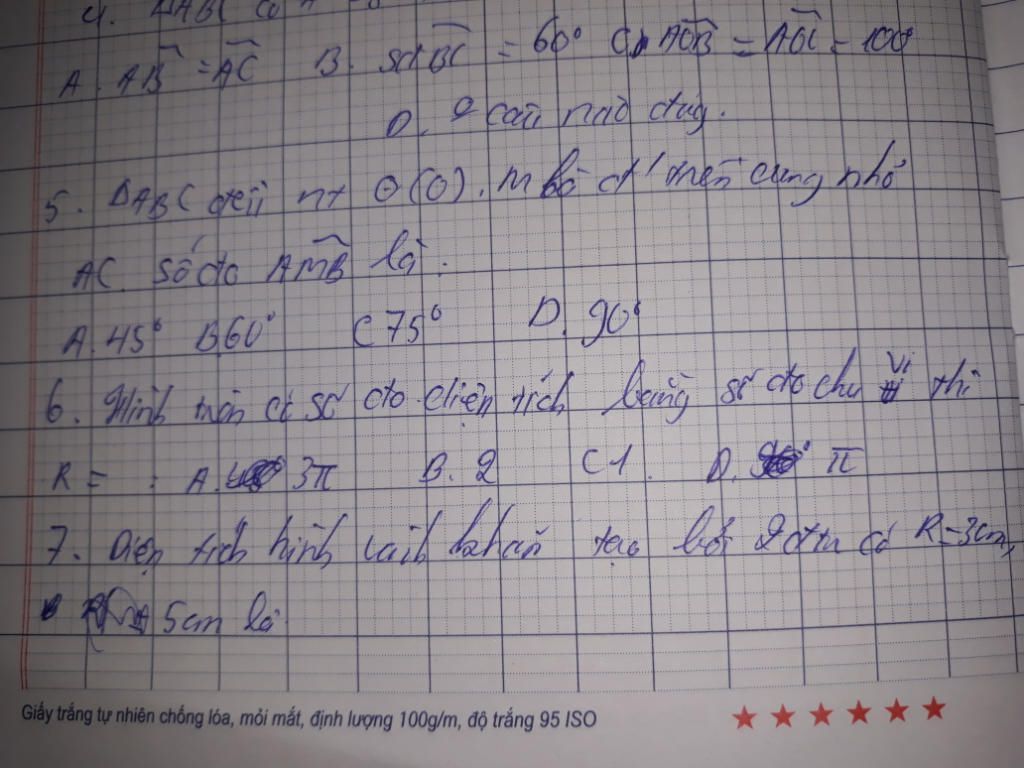 4. ΔABC có
A. AB = AC B. sđ BC = 60° C. AOB = AOC = 100°
D. 0 câu nào đúng.
5. ΔABC đều nt (O). M bất kì trên cung nhỏ
AC. Số đo AMB là:
A. 45° B. 60° C 75° D. 90°
6. Hình tròn có số đo diện tích bằng số đo chu vi thì
R = : A. 3π B. 2 C 1. D. π
7. Diện tích hình vành khăn tạo bởi 2 đtr có R = 3cm,
5cm là
Giấy trắng tự nhiên chống lóa, mỏi mắt, định lượng 100g/m, độ trắng 95 ISO